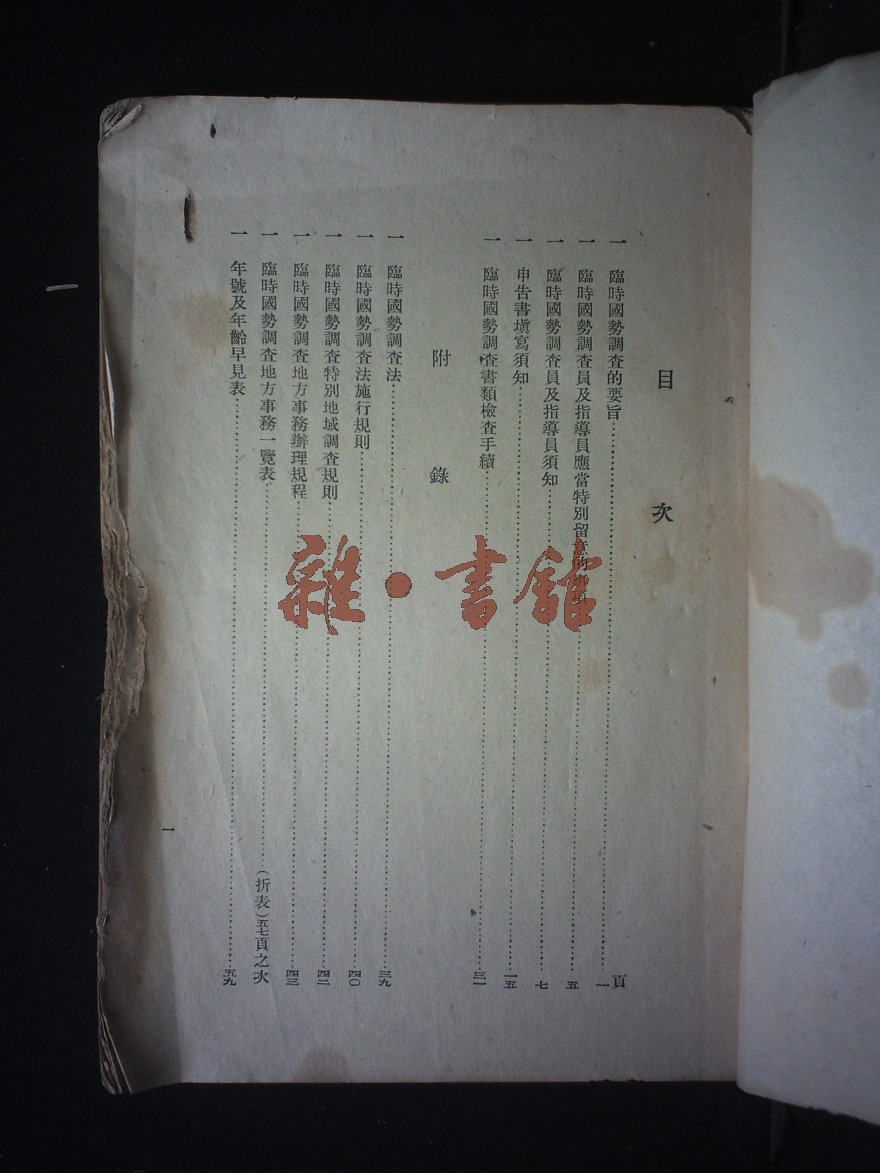 目次
頁
一 臨時國勢調查的要旨……一
一 臨時國勢調查員及指導員應當特別留意的事項……五
一 臨時國勢調查員及指導員須知……七
一 申告書塡寫須知……一五
一 臨時國勢調查書類檢查手續……三一
附錄
一 臨時國勢調查法……三九
一 臨時國勢調查法施行規則……四〇
一 臨時國勢調查特別地域調查規則……四二
一 臨時國勢調查地方事務辦理規程……四三
一 臨時國勢調查地方事務一覽表……(折表)五七頁之次
一 年號及年齡早見表……五九
一
雜·書館